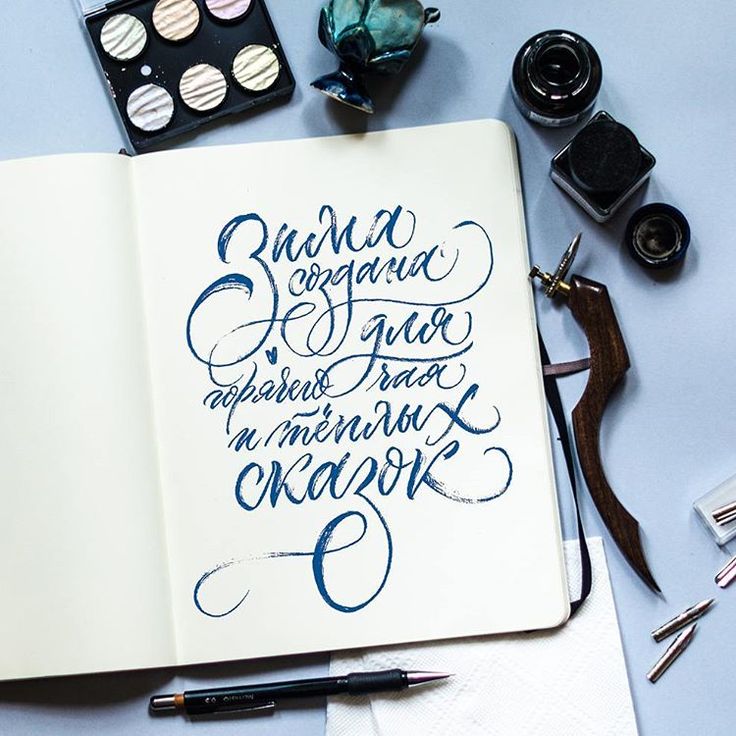 Зима
создана
для
горячего чая
и тёплых
сказок